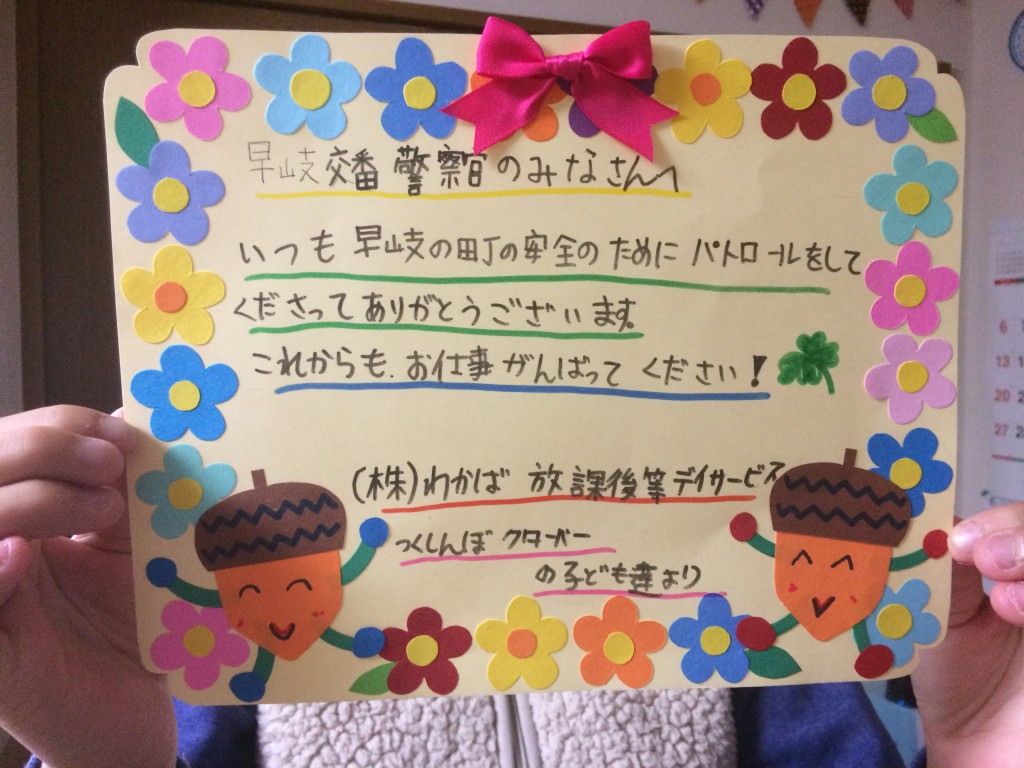 早岐交番 警察官のみなさんへ
いつも 早岐の町の安全のために パトロールをして
くださって ありがとうございます。
これからも、お仕事がんばって ください!
(株)わかば 放課後等デイサービス
つくしんぼ クターバー
の子ども達より
6
13
20
27